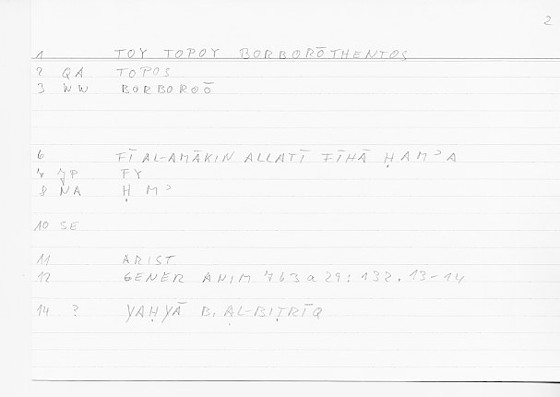 2
1 TOY TOPOY BORBORŌTHENTOS
2 QA TOPOS
3 WW BORBOROŌ
6 FĪ AL-AMĀKIN ALLATĪ FĪHĀ ḤAMʾA
7 JP FY
8 NA ḤMʾ
10 SE
11 ARIST
12 GENER ANIM 763 a 29 : 132.13-14
14 ? YAḤYĀ B. AL-BIṬRĪQ